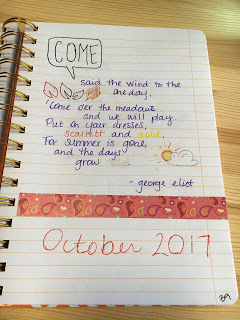 COME
said the wind to the
one day,
"Come o'er the meadows
and we will play.
Put on your dresses,
scarlett and gold,
For summer is gone,
and the days
grow
- george eliot
October 2017